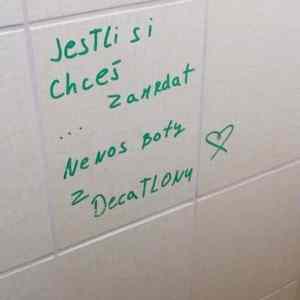 Jestli si
Chceš
zamrdat
...
Nenos boty
z
DecatLONu